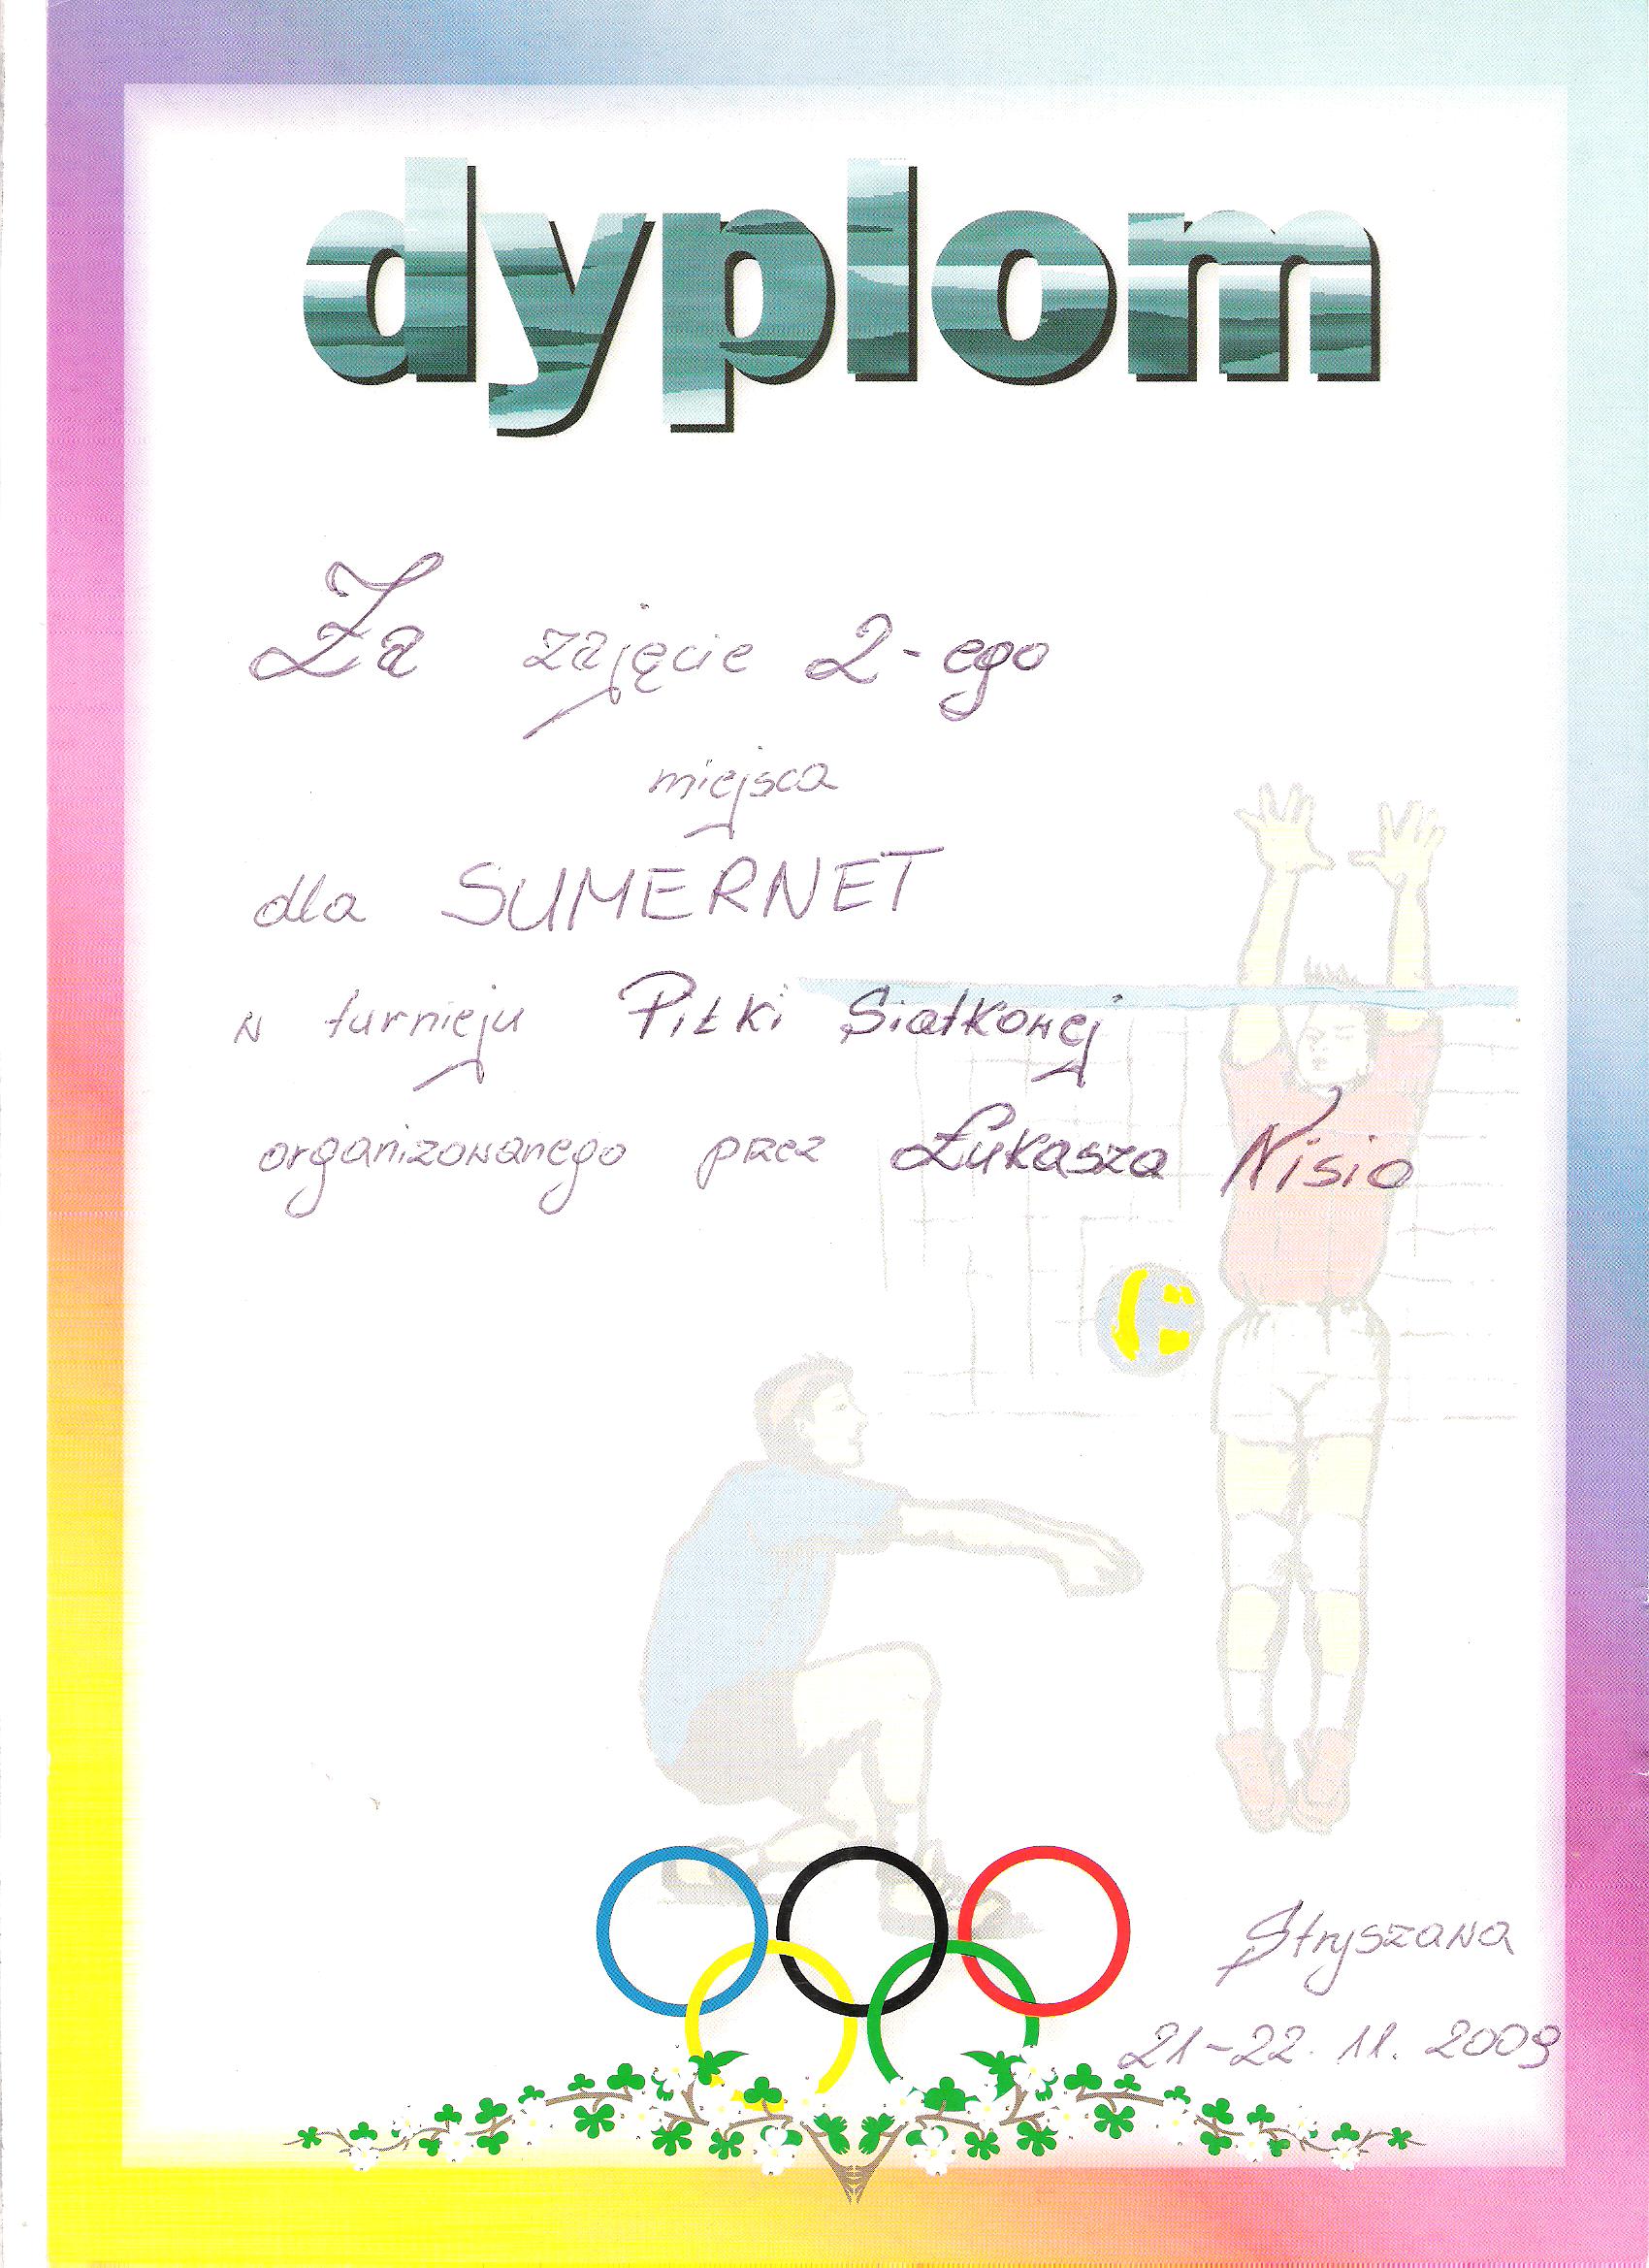 dyplom
Za zajęcie 2-ego
miejsca
dla SUMERNET
w turnieju Piłki Siatkowej
organizowanego przez Łukasza Nisio
Stryszawa
21-22. 11. 2009